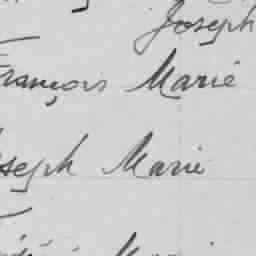 Joseph
François Marie
Joseph Marie